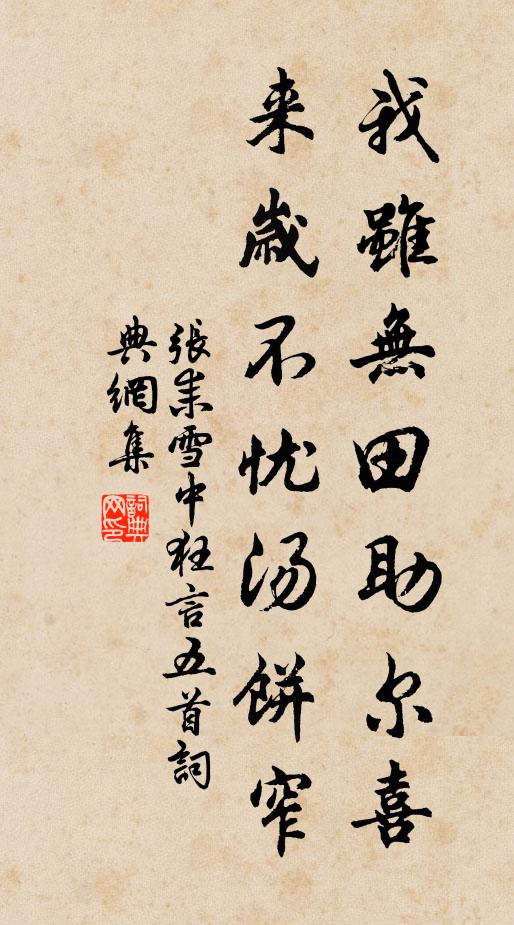 我雖無田助尔喜
来歳不忧汤餅窄
張耒雪中狂言五首詞
典網集
詞典网印